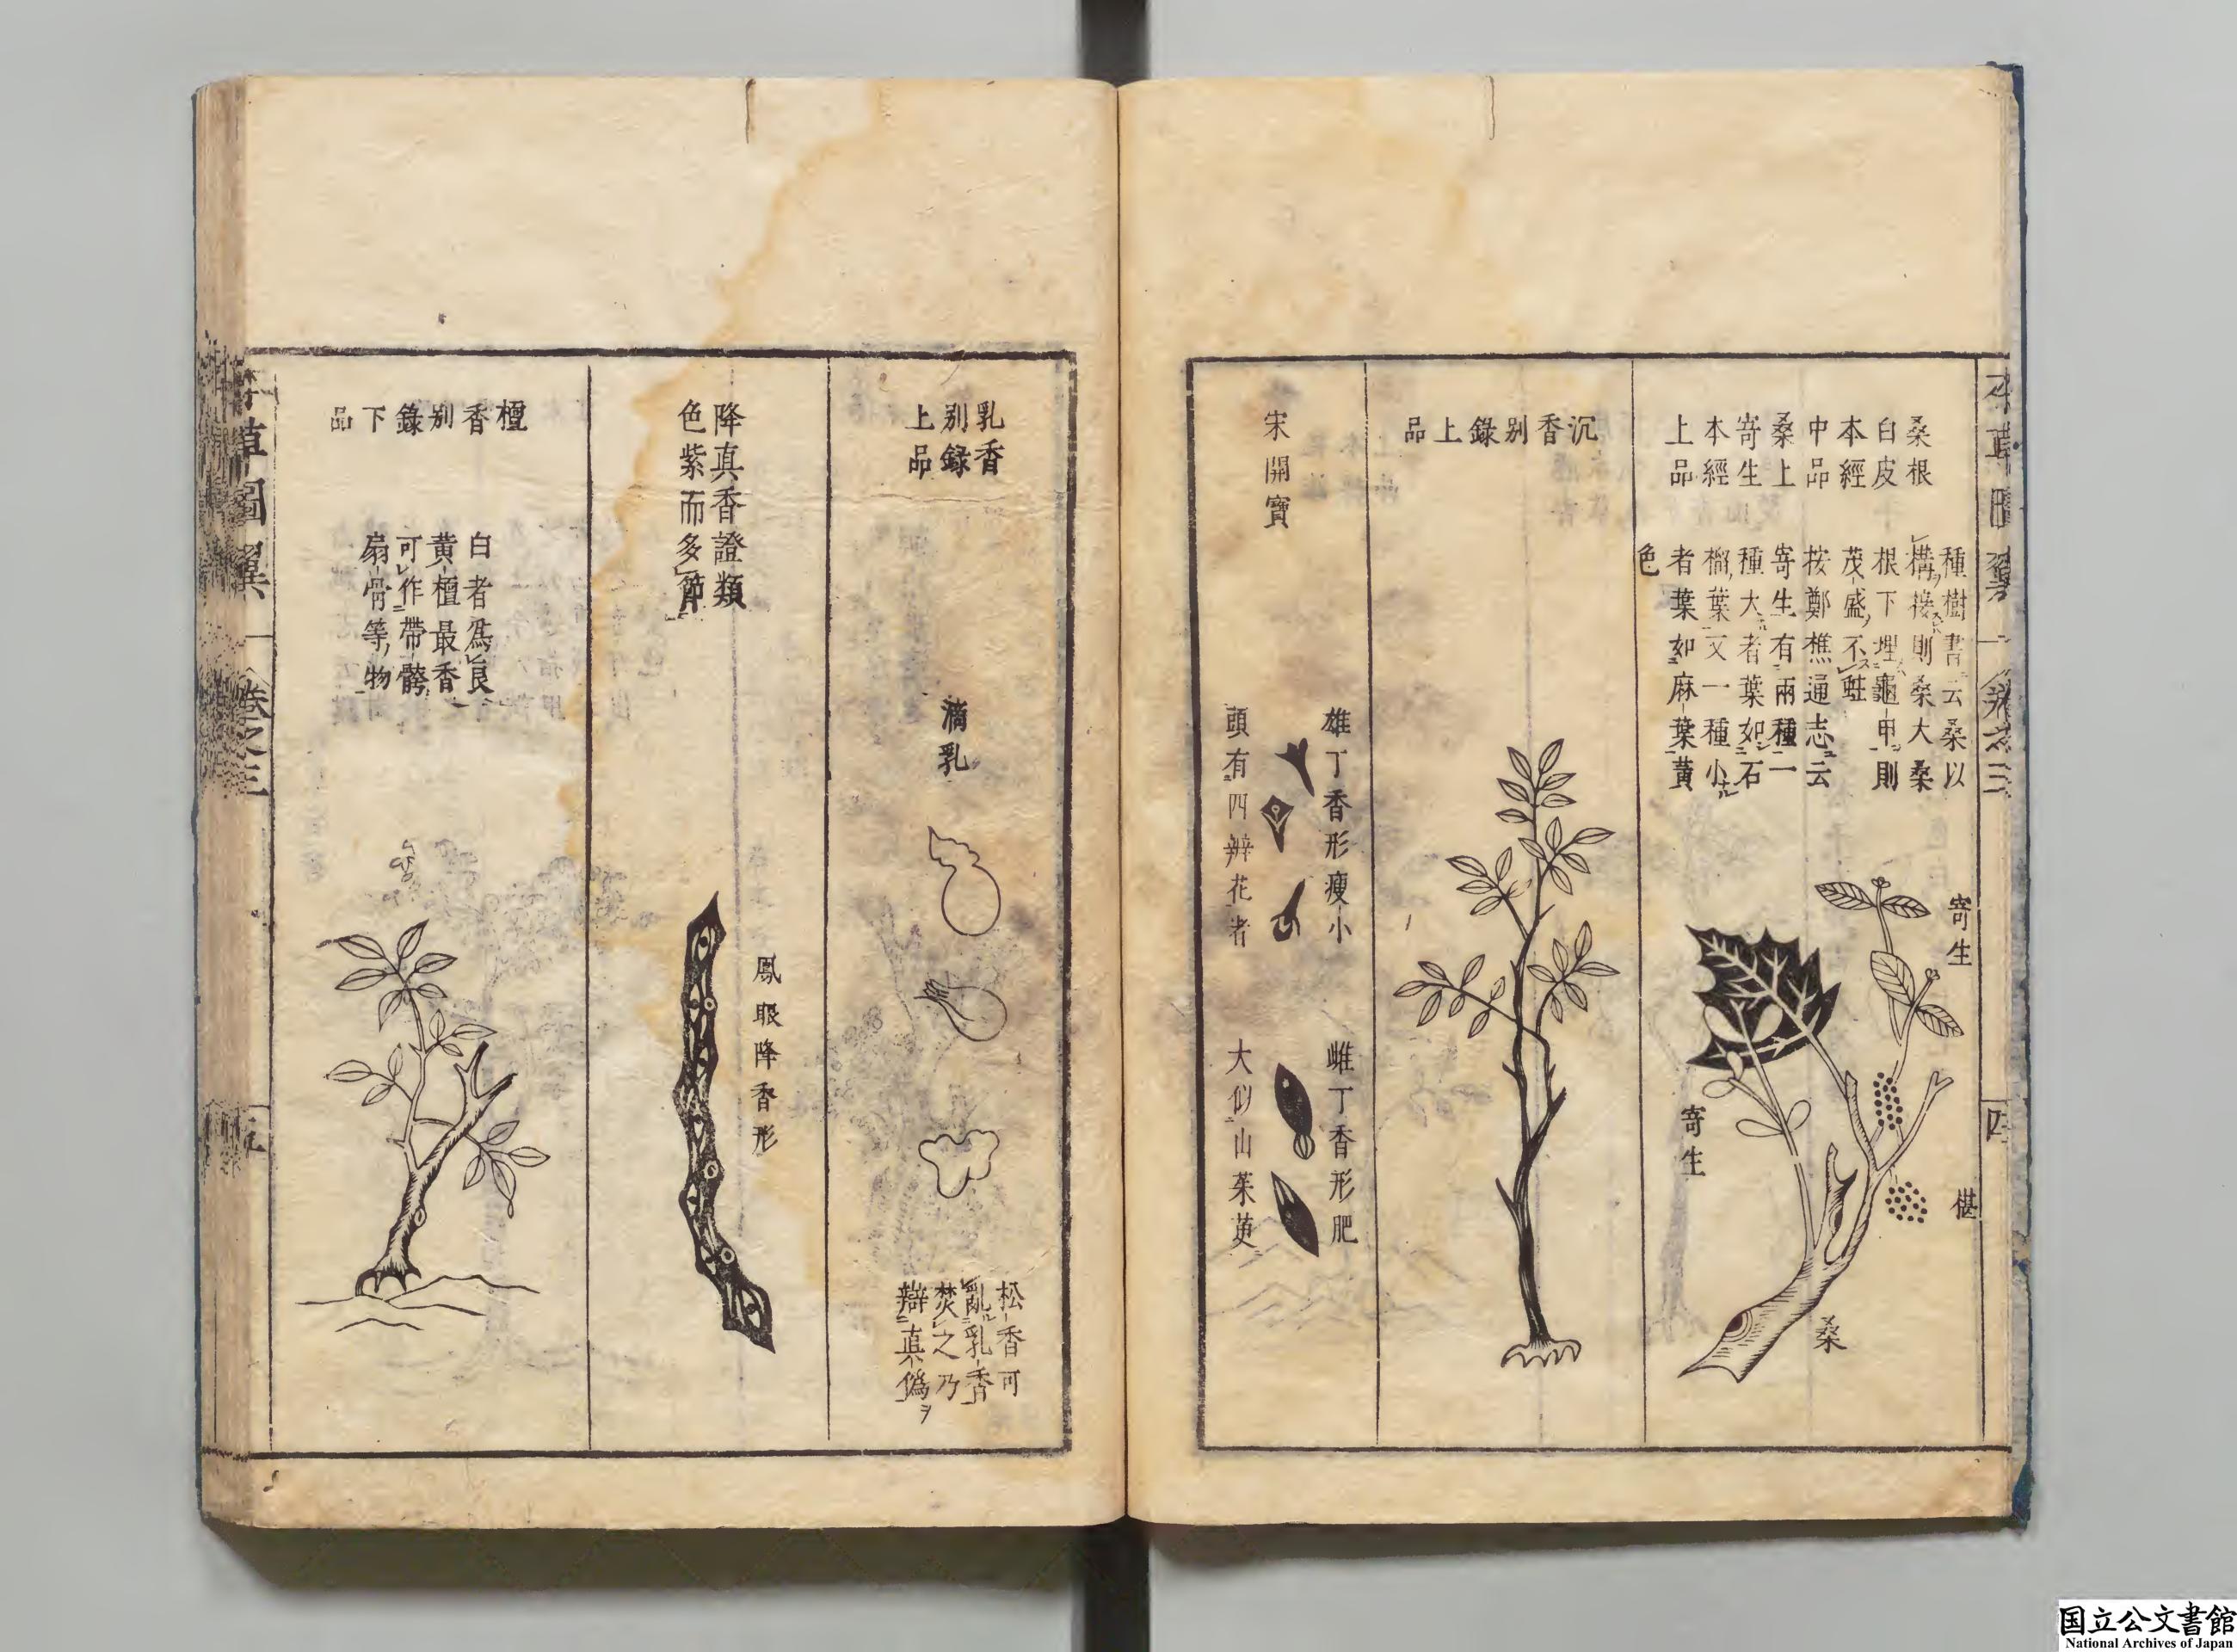 桑根
白皮
本經
中品
桑上
寄生
本經
上品
種樹書云桑以
構接則桑大桑
根下埋龜甲則
茂盛不蛀
按鄭樵通志云
寄生有兩種一
種大者葉如石
榴葉又一種小
者葉如麻葉黃
色
寄生
椹
寄生
桑
四
沉香别錄上品
宋開寶
雄丁香形瘦小
頭有四辨花者
雌丁香形肥
大似山茱萸
乳香
别錄
上品
滴乳
松香可
亂乳香
焚之乃
辯真僞ヲ
降真香證類
色紫而多節
鳳眼降香形
檀香别錄下品
白者爲良
黄檀最香
可作帶骻
扇骨等物
草圖翼 卷之三
五
国立公文書館
National Archives of Japan